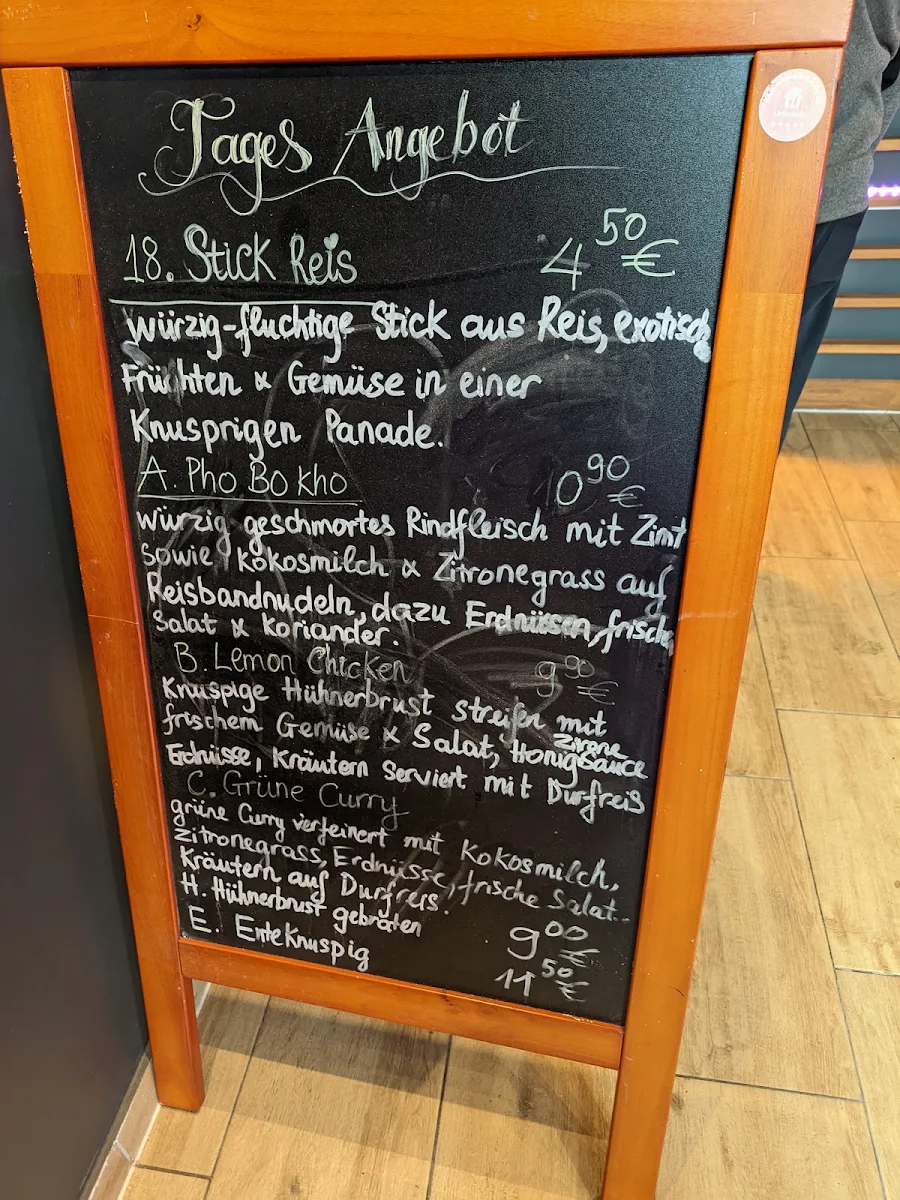 Tages Angebot
18. Stick Reis 4 50 €
würzig-fluchtige Stick aus Reis, exotisch
Früchten & Gemüse in einer
Knusprigen Panade.
A. Pho Bo kho 10 90 €
würzig geschmortes Rindfleisch mit Zimt
sowie kokosmilch & Zitronegrass auf
Reisbandnudeln, dazu Erdnüssen, frische
Salat & Koriander.
B. Lemon Chicken 9 90 €
Knuspige Hühnerbrust streifen mit
frischem Gemüse & Salat, Zitrone Honigsauce
Erdnüsse, Kräutern Serviert mit Durfreis
C. Grüne Curry
grüne Curry verfeinert mit Kokosmilch,
Zitronegrass, Erdnüsse, frische Salat-
Kräutern auf Durfreis.
H. Hühnerbrust gebraten 9 00 €
E. Ente Knuspig 11 50 €